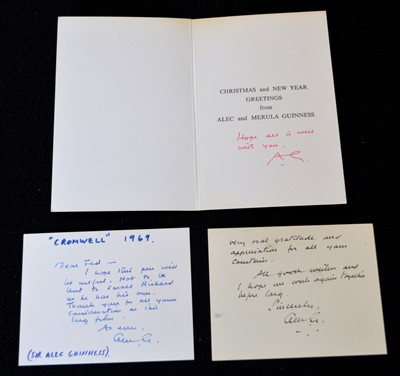 CHRISTMAS and NEW YEAR
GREETINGS
from
ALEC and MERULA GUINNESS
Hope all is well
with you.
A.G.
"CROMWELL" 1969.
Dear Ted —
I hope this pen will
be useful. Not to be
lent to Richard
as he has his own.
Thank you for all your
consideration on this
long film.
As ever,
Alec G.
(SIR ALEC GUINNESS)
very real gratitude and
appreciation for all your
courtesies.
All good wishes and
I hope we work again together
before long.
Sincerely,
Alec G.